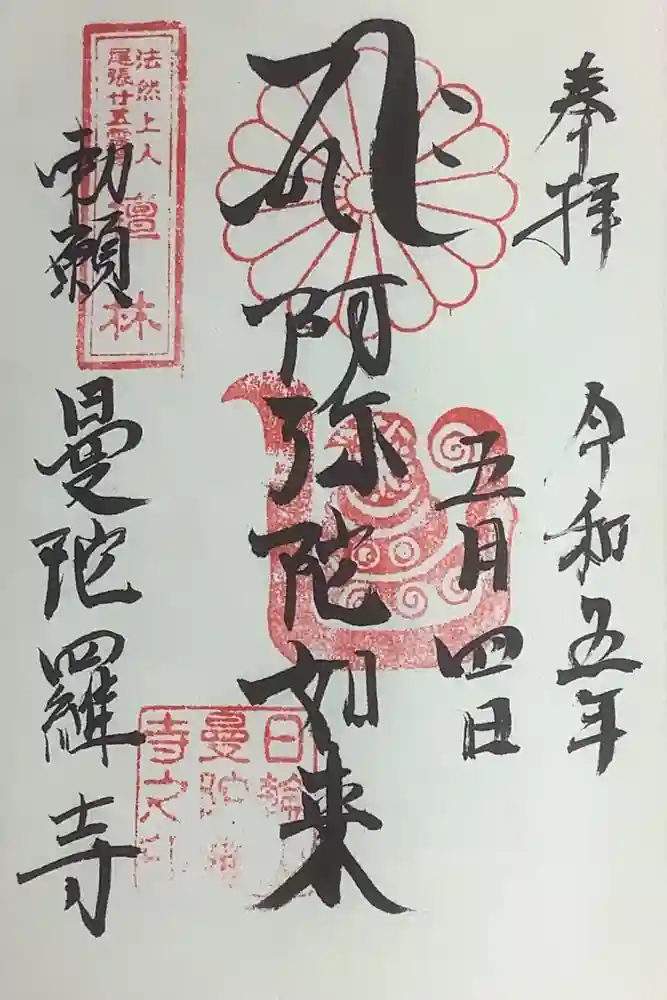 奉拝
令和五年
五月四日
阿弥陀如来
勅願
曼陀羅寺
法然上人
尾張廿五霊
檀林
日輪
曼陀
寺之印